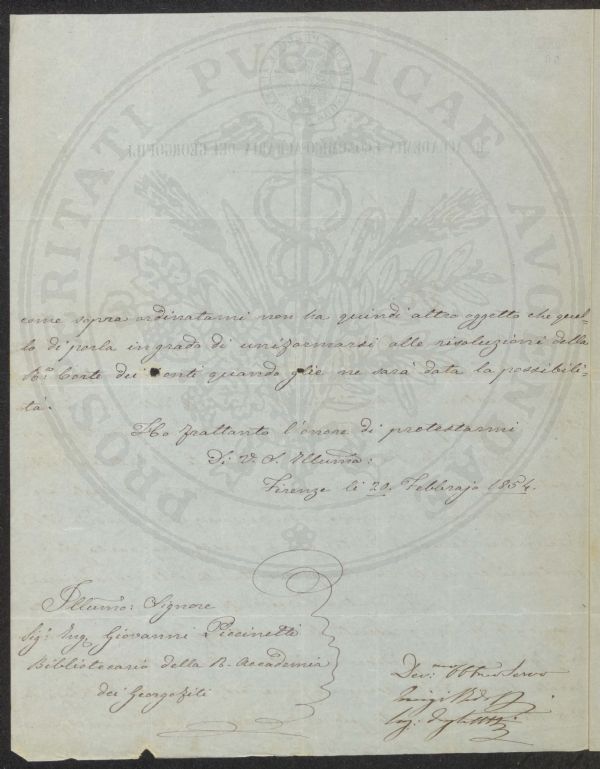 PROSPERITATI PUBLICAE AVGENDA
R. ACCADEMIA ECONOMICO-AGRARIA DEI GEORGOFILI
come sopra ordinatami non ha quindi altro oggetto che quel-
lo di porla in grado di uniformarsi alle risoluzioni della
R.ª Corte dei Conti quando glie ne sarà data la possibili-
tà.
Ho frattanto l'onore di protestarmi
Di V. S. Illuma:
Firenze li 20. Febbrajo 1854.
Illumo: Signore
Sigr Ing. Giovanni Piccinetti
Bibliotecario della R. Accademia
dei Georgofili
Devmo: Obbmo Servo
Luigi